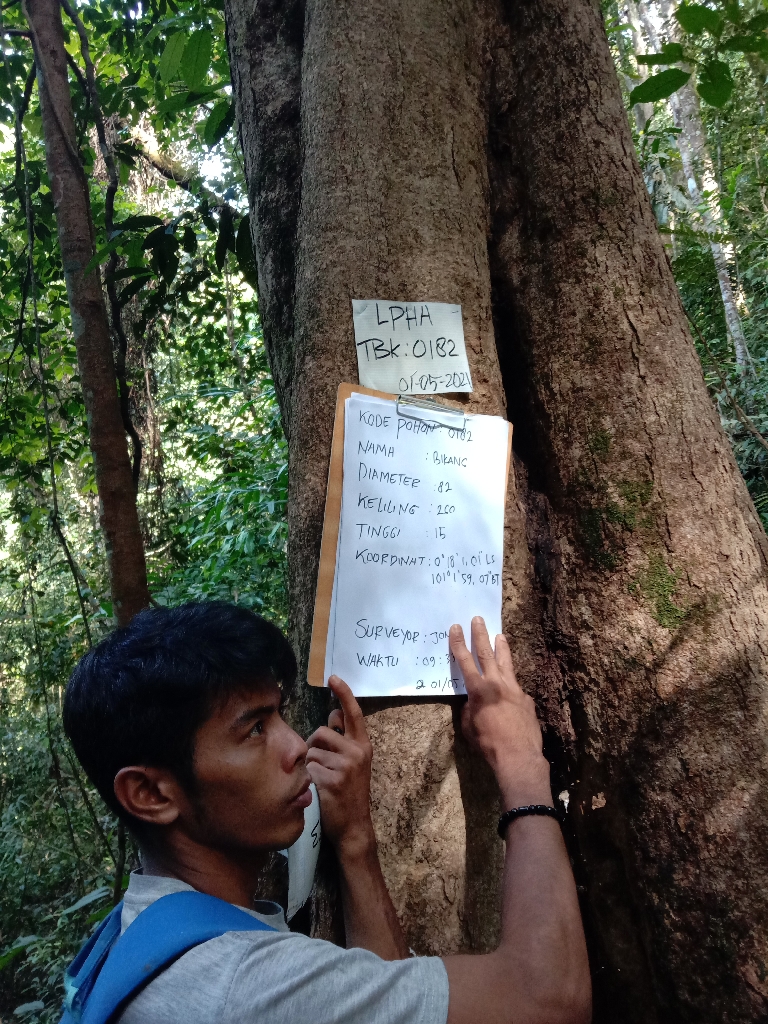 LPHA
TBK: 0182
01-05-2021
KODE POHON: 0182
NAMA : BIKANG
DIAMETER : 82
KELILING : 260
TINGGI : 15
KOORDINAT: 0°18'1,01" LS
101°1'59,07" BT
SURVEYOR: JON
WAKTU : 09:3
01/05